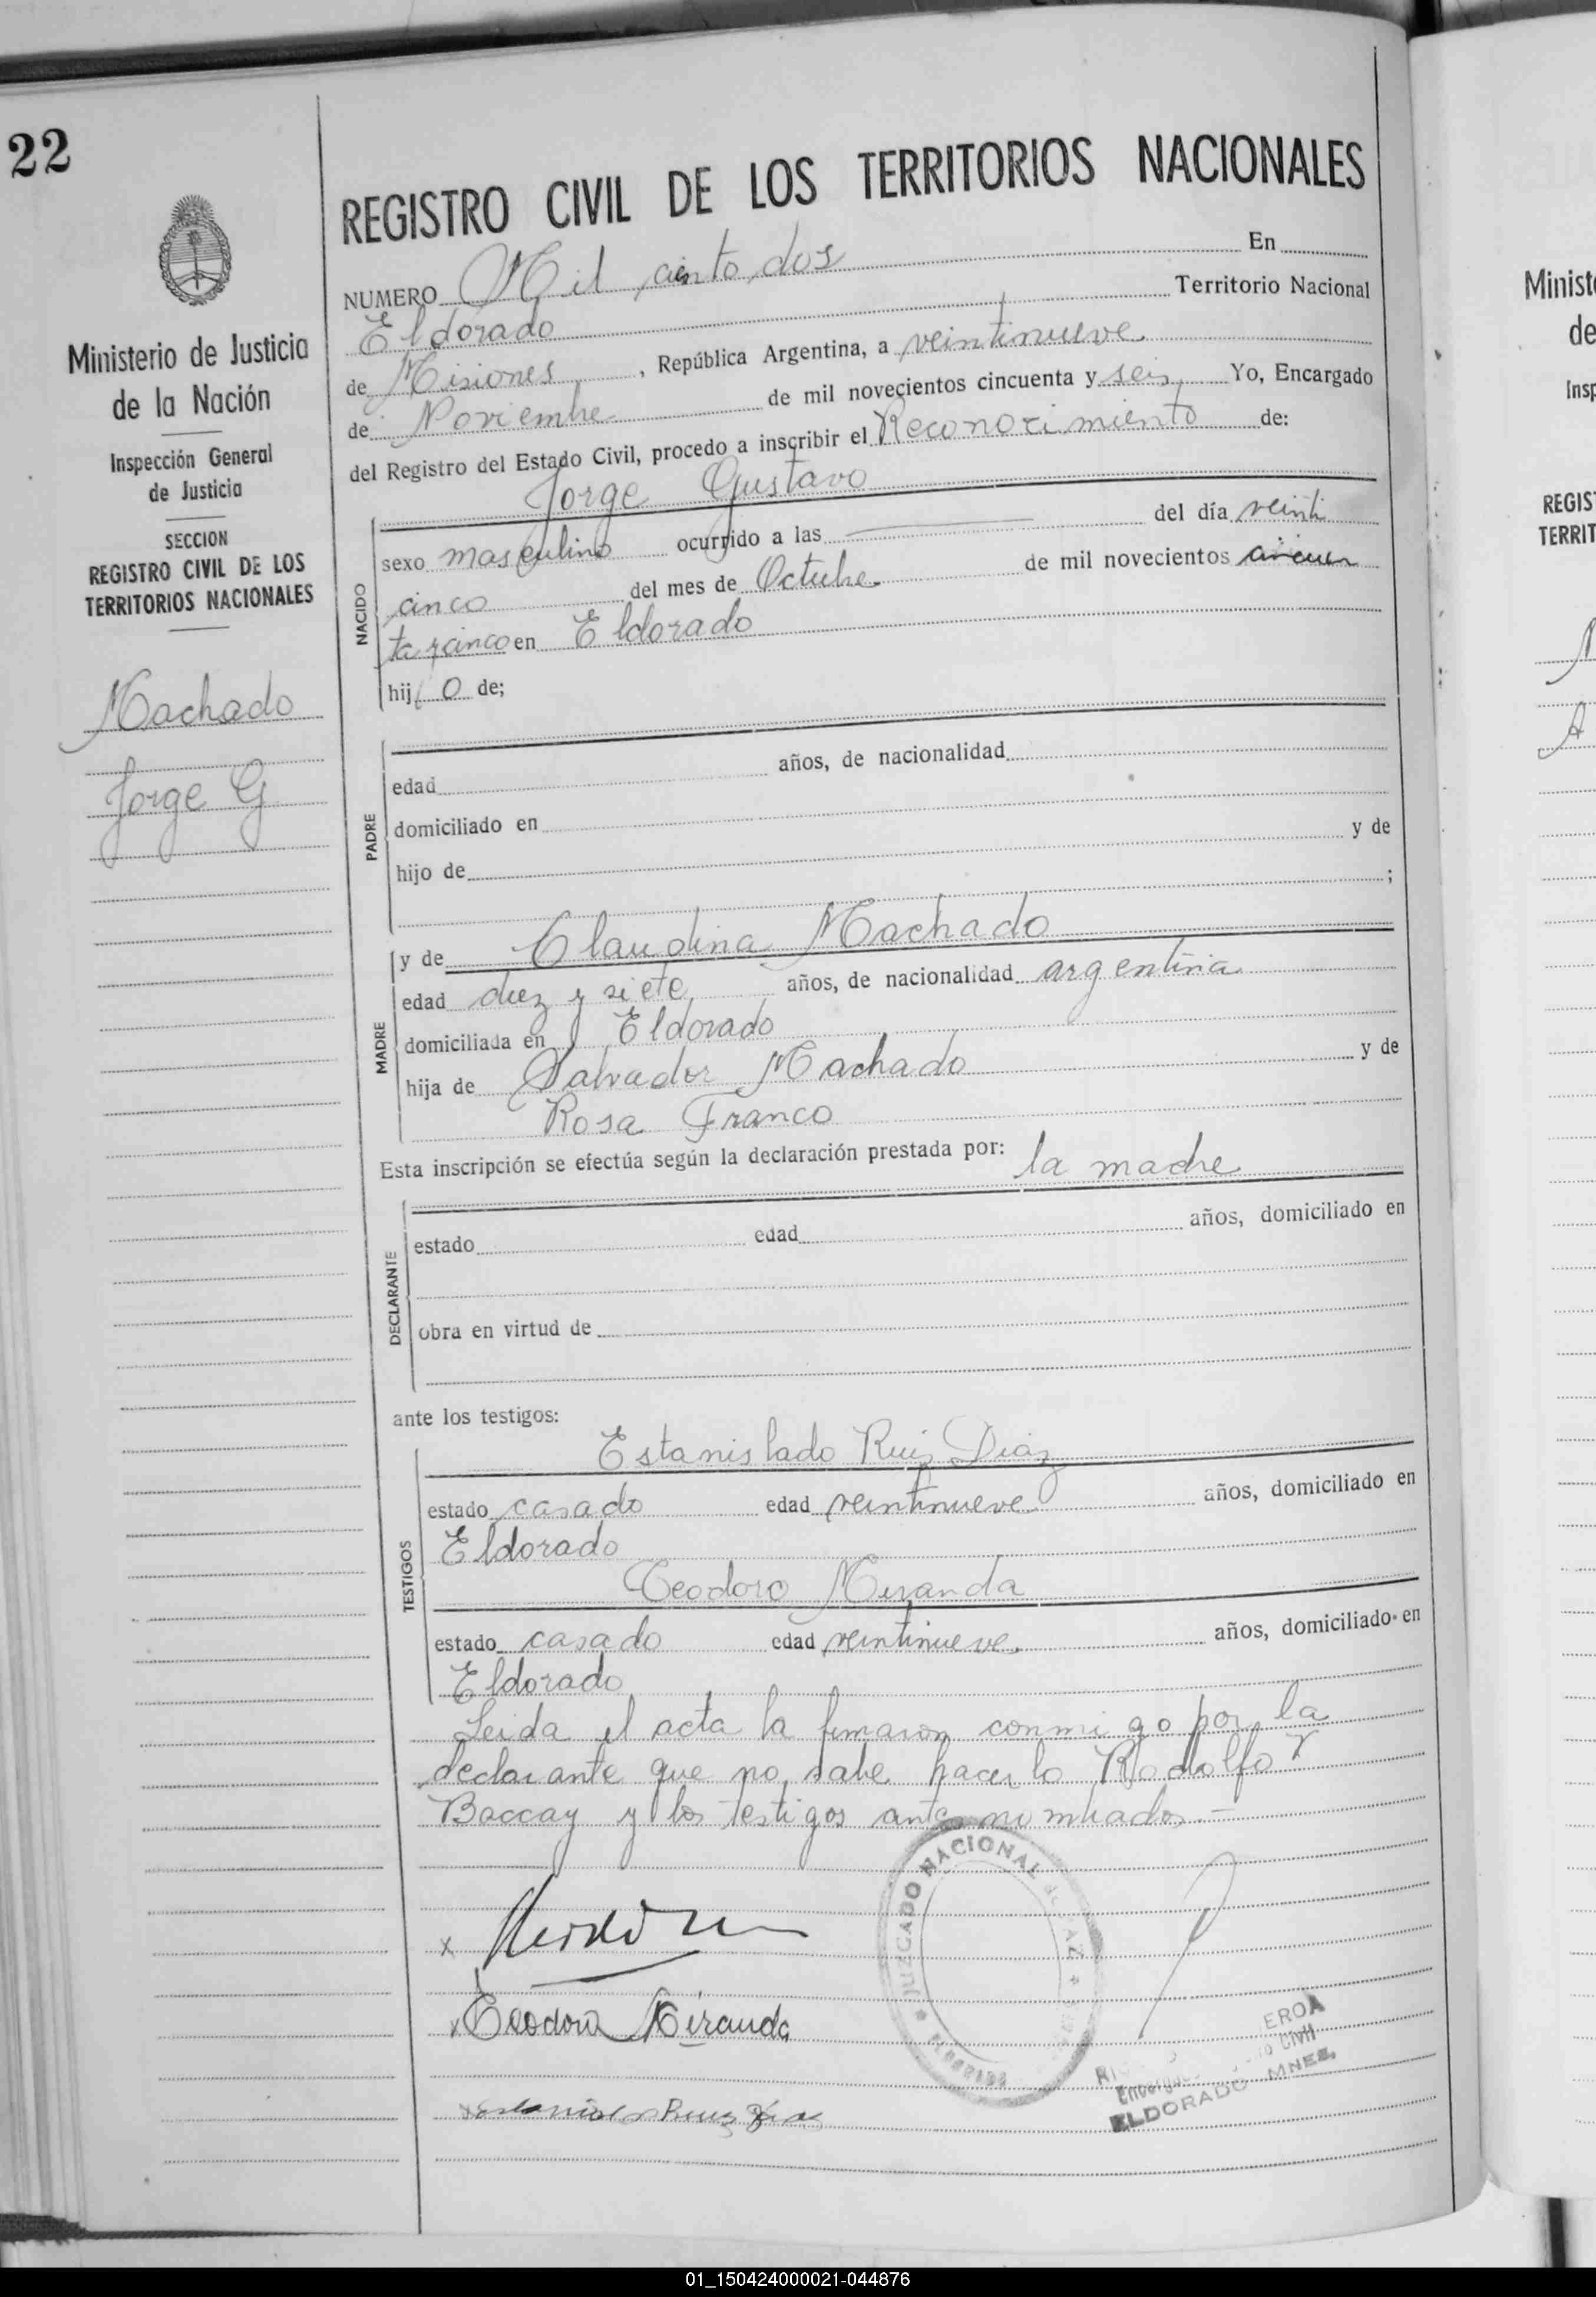 22
REGISTRO CIVIL DE LOS TERRITORIOS NACIONALES
Ministerio de Justicia
de la Nación
Inspección General
de Justicia
SECCION
REGISTRO CIVIL DE LOS
TERRITORIOS NACIONALES
Machado
Jorge G
NUMERO Mil ciento dos En
Eldorado Territorio Nacional
de Misiones, República Argentina, a veintinueve
de Noviembre de mil novecientos cincuenta y seis Yo, Encargado
del Registro del Estado Civil, procedo a inscribir el Reconocimiento de:
Jorge Gustavo
NACIDO
sexo masculino ocurrido a las del día veinti
cinco del mes de Octubre de mil novecientos cincuen
ta y cinco en Eldorado
hij o de;
PADRE
edad años, de nacionalidad
domiciliado en
hijo de y de
;
MADRE
y de Claudina Machado
edad diez y siete años, de nacionalidad argentina
domiciliada en Eldorado
hija de Salvador Machado y de
Rosa Franco
Esta inscripción se efectúa según la declaración prestada por: la madre
DECLARANTE
estado edad años, domiciliado en
obra en virtud de
ante los testigos:
TESTIGOS
Estanislado Ruiz Diaz
estado casado edad veintinueve años, domiciliado en
Eldorado
Teodoro Miranda
estado casado edad veintinueve años, domiciliado en
Eldorado
Leida el acta la firmaron conmigo por la
declarante que no sabe hacerlo Rodolfo
Baccay y los testigos antes nombrados.-
x
x Teodoro Miranda
Ruiz Diaz
JUZGADO NACIONAL de PAZ
EROA
Encargado Civil
ELDORADO MNES.
Minist
de
Insp
REGIS
TERRIT
01_150424000021-044876